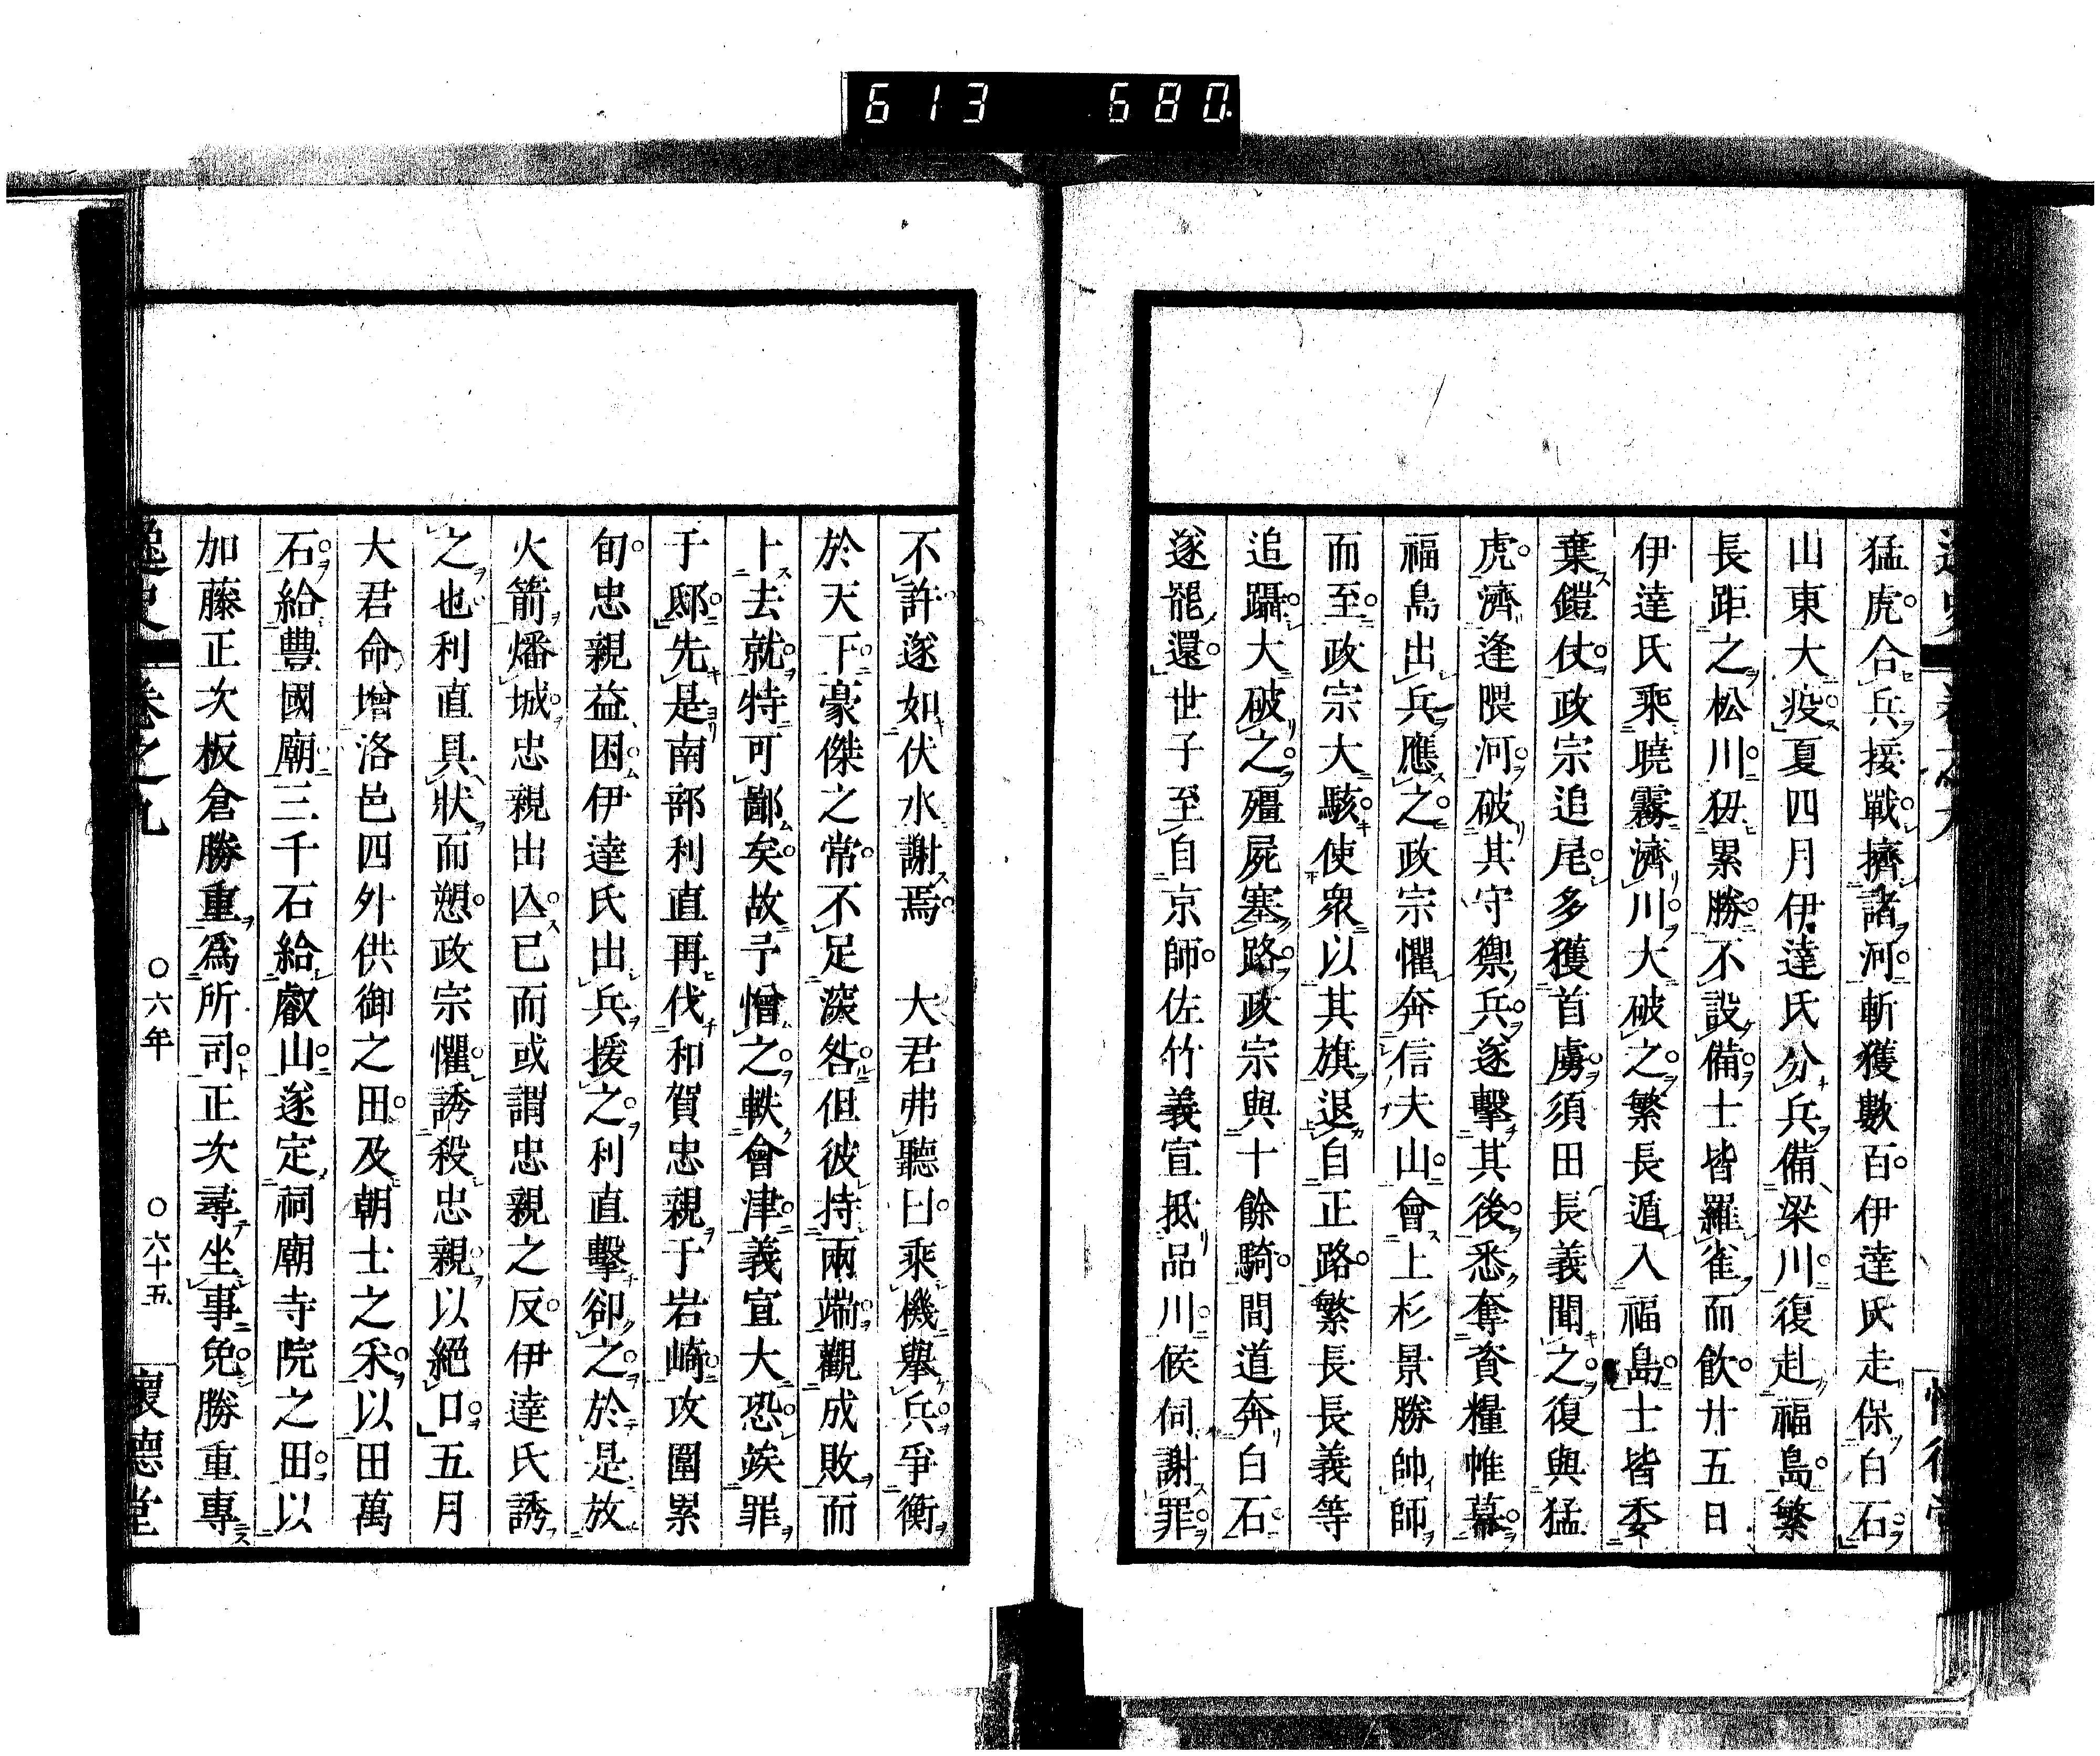 613 680
猛虎合兵接戰擠諸河斬獲數百伊達氏走保白石
山東大疫夏四月伊達氏分兵備梁川復赴福島繁
長距之松川毎累勝不設備士皆羅雀而飮廿五日
伊達氏乘曉霧濟川大破之繁長遁入福島士皆委
棄鎧仗政宗追尾多獲首虜須田長義聞之復與猛
虎濟逢隈河破其守禦兵遂擊其後悉奪資糧帷幕
福島出兵應之政宗懼奔信夫山會上杉景勝帥師
而至政宗大駭使衆以其旗退自正路繁長長義等
追躡大破之殭屍塞路政宗與十餘騎間道奔白石
遂罷還世子至自京師佐竹義宣抵品川候伺謝罪
不許遂如伏水謝焉　大君弗聽曰乘機擧兵爭衡
於天下豪傑之常不足深咎但彼持兩端觀成敗而
卜去就特可鄙矣故予憎之軼會津義宣大恐竢罪
于邸先是南部利直再伐和賀忠親于岩崎攻圍累
旬忠親益困伊達氏出兵援之利直擊卻之於是放
火箭燔城忠親出亾已而或謂忠親之反伊達氏誘
之也利直具狀而愬政宗懼誘殺忠親以絕口五月
大君命增洛邑四外供御之田及朝士之采以田萬
石給豐國廟三千石給叡山遂定祠廟寺院之田以
加藤正次板倉勝重爲所司正次尋坐事免勝重專
逸史 卷之九 〇六年 〇六十五 懷德堂